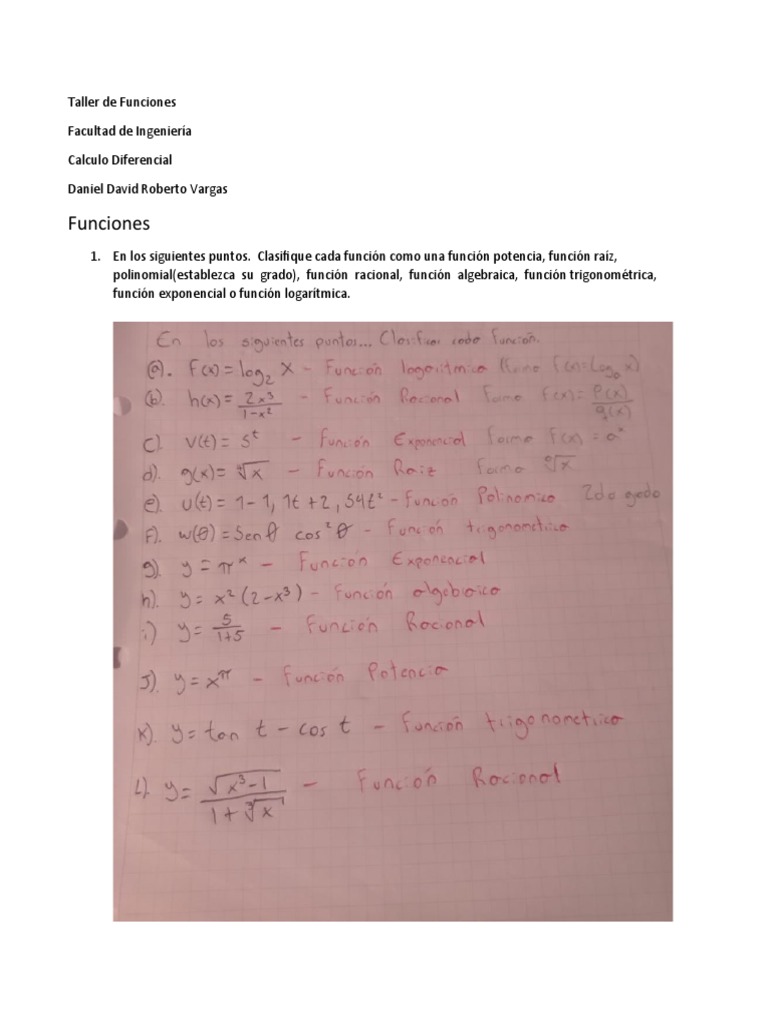 Taller de Funciones
Facultad de Ingeniería
Calculo Diferencial
Daniel David Roberto Vargas
Funciones
1. En los siguientes puntos. Clasifique cada función como una función potencia, función raíz,
polinomial(establezca su grado), función racional, función algebraica, función trigonométrica,
función exponencial o función logarítmica.
En los siguientes puntos... Clasificar cada función.
(a). F(x) = log₂ x - Función logaritmica (forma f(x)=Logₐ x)
(b). h(x) = 2x³/1-x² - Función Racional Forma f(x) = P(x)/q(x)
c). v(t) = 5ᵗ - Función Exponencial forma f(x) = aˣ
d). g(x) = ⁴√x - Función Raiz forma ⁿ√x
e). u(t) = 1-1,1t+2,54t² - Función Polinomica 2do grado
F). w(θ) = Sen θ cos²θ - Función trigonometrica
g). y = πˣ - Función Exponencial
h). y = x²(2-x³) - Función algebraica
i) y = 5/1+5 - Función Racional
J). y = x^π - Función Potencia
K). y = tan t - cos t - Función trigonometrica
L). y = √x³-1/1+∛x - Función Racional